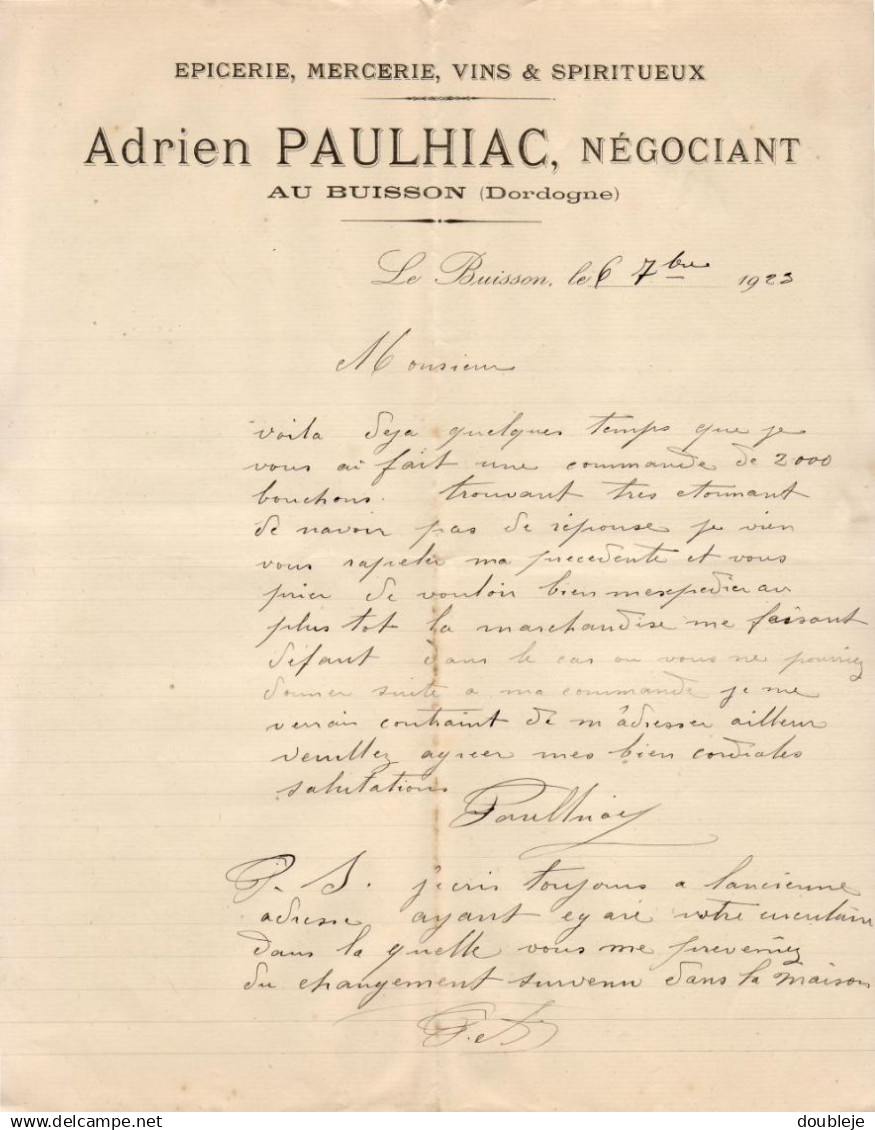 EPICERIE, MERCERIE, VINS & SPIRITUEUX
Adrien PAULHIAC, NÉGOCIANT
AU BUISSON (Dordogne)
Le Buisson, le 6 7bre 1923
Monsieur
voila deja quelques temps que je
vous ai fait une commande de 2000
bouchons. trouvant tres etonnant
de navoir pas de réponse je vien
vous rapeler ma precedente et vous
prier de vouloir bien mexpedier au
plus tot la marchandise me faisant
défaut dans le cas ou vous ne pouriez
donner suite a ma commande je me
verrais contraint de m'adresser ailleur
veuillez agreer mes bien cordiales
salutations
Paulhiac
P. S. j'ecris toujours a lancienne
adresse ayant egaré votre circulaire
dans la quelle vous me preveniez
du changement survenu dans la maison
doubleje